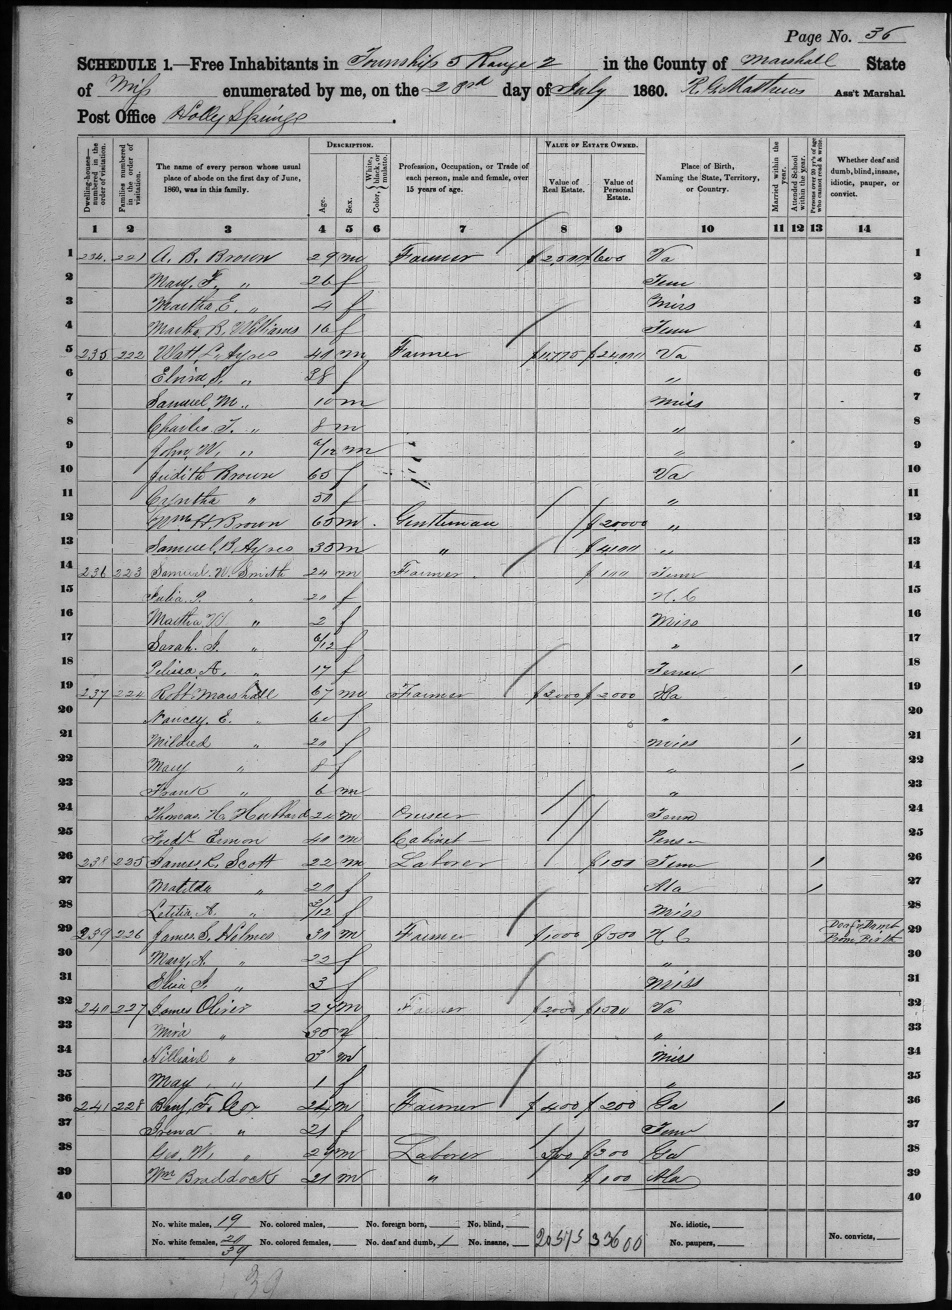 Page No. 36
SCHEDULE 1.—Free Inhabitants in Township 5 Range 2 in the County of Marshall State
of Miss enumerated by me, on the 28rd day of July 1860. R. G. Matthews Ass't Marshal.
Post Office Holly Springs.
Dwelling-houses—numbered in the order of visitation. Families numbered in the order of visitation. The name of every person whose usual place of abode on the first day of June, 1860, was in this family. DESCRIPTION. Age. Sex. Color, White, black, or mulatto. Profession, Occupation, or Trade of each person, male and female, over 15 years of age. VALUE OF ESTATE OWNED. Value of Real Estate. Value of Personal Estate. Place of Birth, Naming the State, Territory, or Country. Married within the year. Attended School within the year. Persons over 20 y'rs of age who cannot read & write. Whether deaf and dumb, blind, insane, idiotic, pauper, or convict.
1 2 3 4 5 6 7 8 9 10 11 12 13 14
1 234. 221 A. B. Brown 29 m Farmer Va 1
2 Mary F. „ 26 f Tenn 2
3 Martha E. „ 4 f Miss 3
4 Martha R. Williams 16 f Tenn 4
5 235 222 Watt L. Ayres 40 m Farmer $11,775 Va 5
6 „ 38 f „ 6
7 Samuel M. „ 10 m Miss 7
8 Charles T. „ 8 m „ 8
9 John W. „ m „ 9
10 Judith Brown 65 f Va 10
11 Cyntha „ 50 f „ 11
12 Wm H Brown 65 m Gentleman $20000 „ 12
13 Samuel B. Ayres 35 m „ „ 13
14 236 223 Samuel W. Smith 24 m Farmer $100 Tenn 14
15 Julia P. „ 20 f N. C 15
16 Martha „ 2 f Miss 16
17 Sarah „ 6/12 f „ 17
18 A. „ 17 f Tenn / 18
19 237 224 Robt Marshall 67 m Farmer $3000 $2000 Va 19
20 Nancey E. „ 60 f „ 20
21 Mildred „ 20 f Miss / 21
22 Mary „ 8 f „ / 22
23 Frank „ 6 m „ 23
24 Thomas H. Hubbard 24 m Tenn 24
25 Fredk 40 m Cabinet 25
26 238 225 James R. Scott 22 m Laborer $100 Tenn / 26
27 Matilda „ 20 f Ala / 27
28 Letitia A. „ f Miss 28
29 239 226 James S. Holmes 30 m Farmer $1000 $500 N C Deaf & Dumb From Birth 29
30 Mary A. „ 22 f „ 30
31 Eliza „ 3 f Miss 31
32 240 227 James Oliver 27 m Farmer $2000 Va 32
33 „ f „ 33
34 Hilliard „ 3 m Miss 34
35 May „ 1 f „ 35
36 241 228 Benj. F. Cox 24 m Farmer $400 $200 Ga / 36
37 Irena „ 21 f Tenn 37
38 Geo. W. „ m Laborer 300 $300 Ga 38
39 Wm Braddock 21 m „ $100 Ala 39
40 40
No. white males, 19 No. colored males, No. foreign born, No. blind, No. idiotic,
No. white females, 20 No. colored females, No. deaf and dumb, 1 No. insane, 20575 33600 No. paupers, No. convicts,
39
39